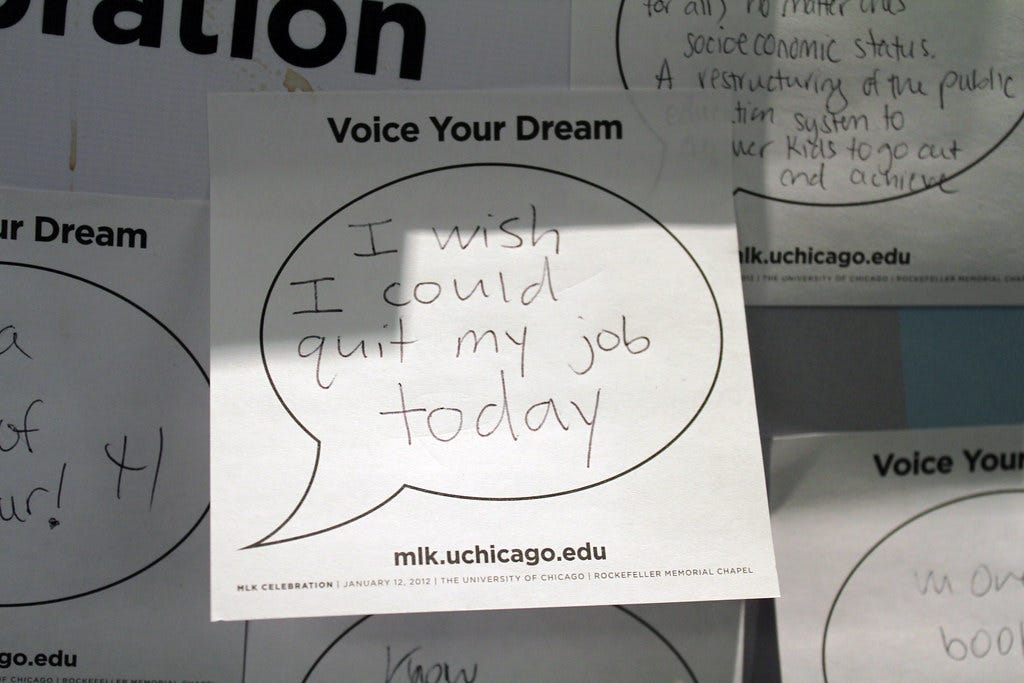 oration
for all) no matter
socioeconomic status.
A restructuring of the public
tion system to
kids to go out
and achieve
lk.uchicago.edu
2012 | THE UNIVERSITY OF CHICAGO | ROCKEFELLER MEMORIAL CHAPE
Voice Your Dream
I wish
I could
quit my job
today
mlk.uchicago.edu
MLK CELEBRATION | JANUARY 12, 2012 | THE UNIVERSITY OF CHICAGO | ROCKEFELLER MEMORIAL CHAPEL
ur Dream
a
of
ur!
go.edu
OF CHICAGO | ROCKEFELLER MEMORIAL CHAPEL
Voice Your
more
book
Know